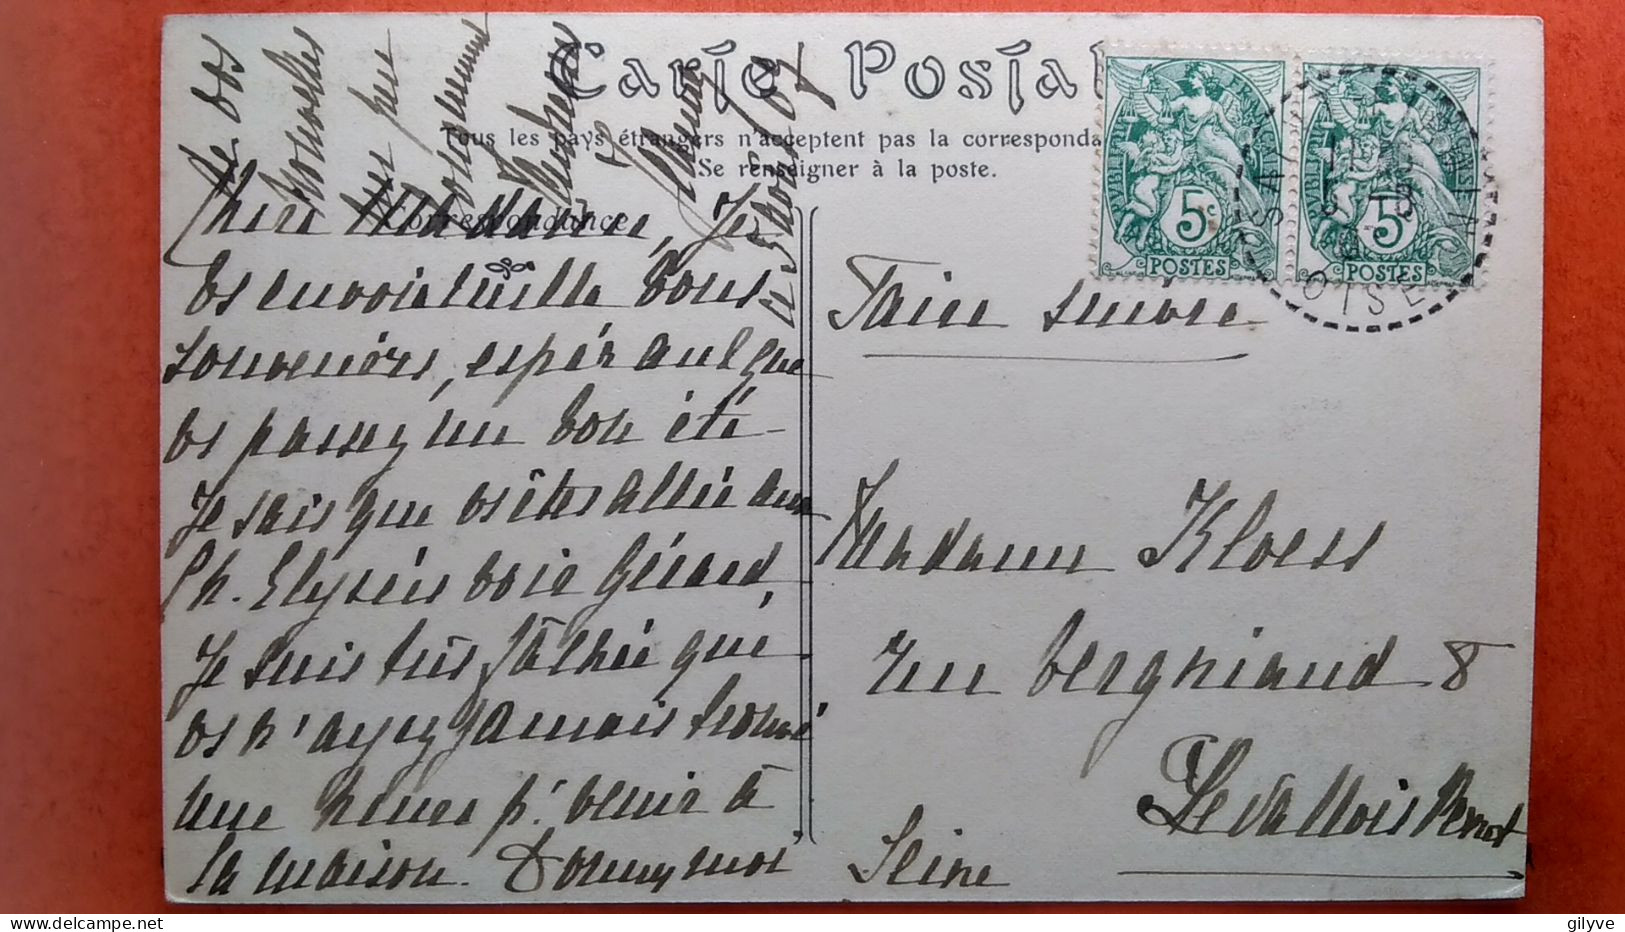 Carte Postale
Tous les pays étrangers n'acceptent pas la corresponda
Se renseigner à la poste.
Correspondance
Chère Madame, Je
vs envoie mille bons
souvenirs, espérant que
vs passez un bon été
Je sais que vs êtes allée aux
Ch. Elysées voir Gérard,
Je suis très fâchée que
vs n'ayez jamais trouvé
une heure pr. venir à
la maison. Donnez moi
de vos
nouvelles
Faire suivre
Madame Kloess
rue Vergniaud 8
Levallois Perret
Seine
RÉPUBLIQUE FRANÇAISE
5c
POSTES
RÉPUBLIQUE FRANÇAISE
5c
POSTES
OISE
gilyve